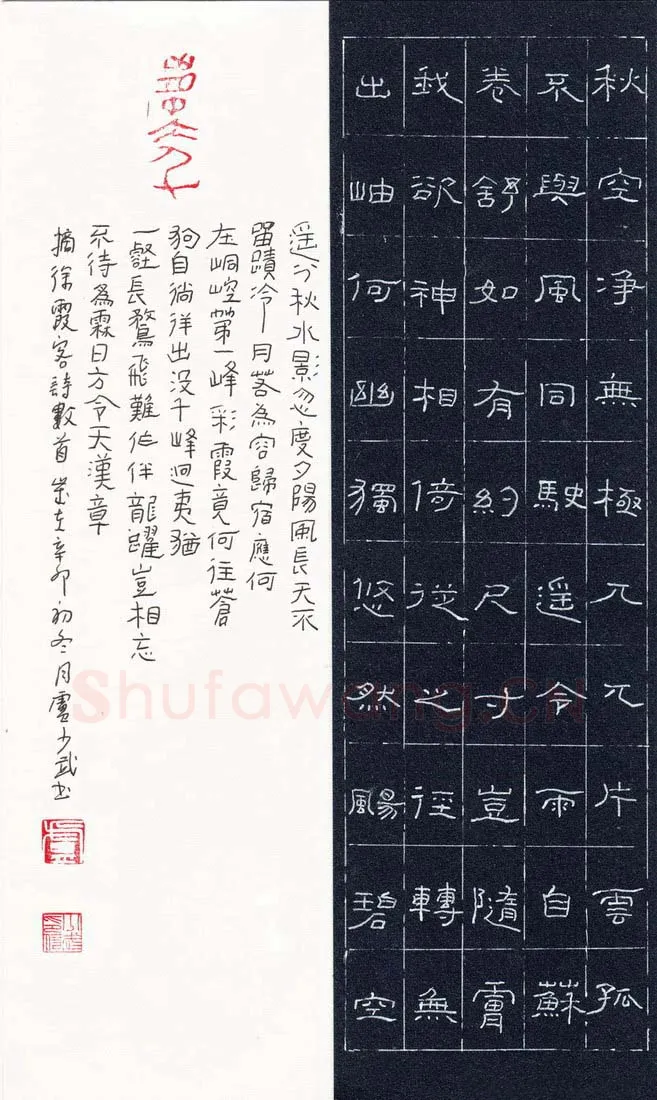 秋空净無極兀兀片雲孤
不與風同駛遥令雨自蘇
卷舒如有約尺寸豈隨膚
我欲神相倚從之徑轉無
出岫何幽獨悠然颺碧空
遥分秋水影忽度夕陽風長天不
留蹟冷月落為容歸宿應何
在峒崆第一峰彩霞竟何往蒼
狗自徜徉出没千峰迥夷猶
一壑長鶩飛難作伴龍躍豈相忘
不待為霖日方令天漢章
摘徐霞客詩數首崇左辛卯初冬月盧少武书
Shufawang.CN